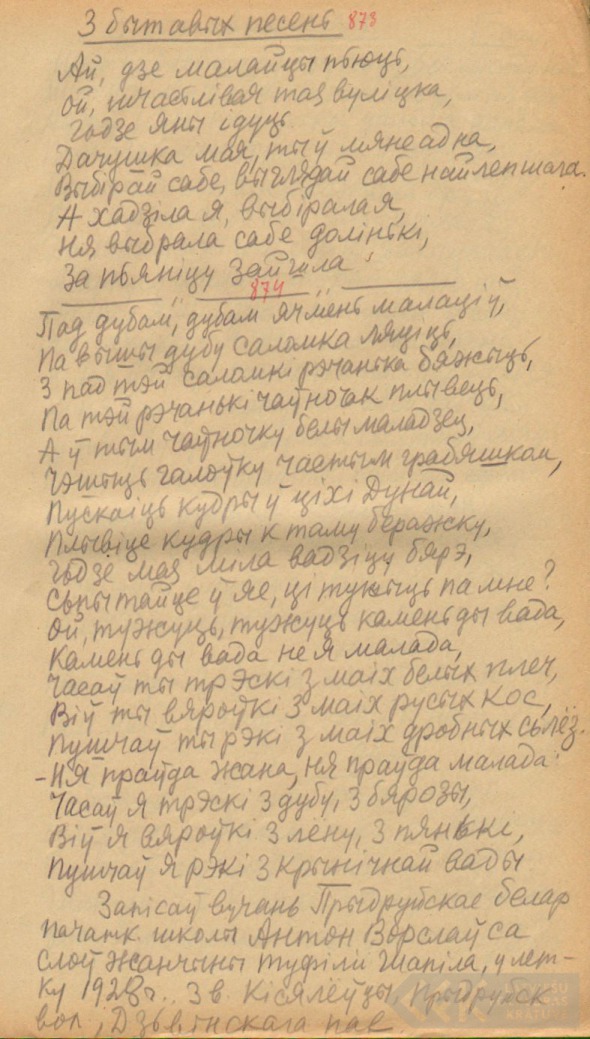 З бытавых песень 873
Ай, дзе малайцы пьюць,
Ой, шчасьлівая тая вуліцка,
Гьдзе яны ідуць
Дачушка мая, ты ў мяне адна,
Выбірай сабе, выглядай сабе найлепшага.
А хадзіла я, выбірала я,
Ня выбрала сабе долінькі,
За пьяніцу зайшла
874
Пад дубам, дубам ячмень малаціў,
Па вышы дубу саломка ляціць,
З пад тэй саломкі рэчанька бяжыць,
Па тэй рэчанькі чаўночак плывець,
А ў тым чаўночку белы маладзец,
Чэшыць галоўку частым грабяшком,
Пускаіць кудры ў ціхі Дунай,
Плывіце кудры к таму беражку,
Гьдзе мая міла вадзіцу бярэ,
Сьпытайце ў яе, ці тужыць па мне?
Ой, тужуць, тужуць камень ды вада,
Камень ды вада не я малада,
Часаў ты трэскі з маіх белых плеч,
Віў ты вяроўкі з маіх русых кос,
Пушчаў ты рэкі з маіх дробных сьлёз.
- Ня праўда жана, ня праўда малада
Часаў я трэскі з дубу, з бярозы,
Віў я вяроўкі з лёну, з пянькі,
Пушчаў я рэкі з крынічнай вады
Запісаў вучань Прыдруйскае белар
пачатк. школы Антон Ворслаў са
слоў жанчыны Туфілі Шапіла, у лет-
ку 1928г.. З в. Кісялёўцы Прыдруйск
вол., Дзьвінскага пав.